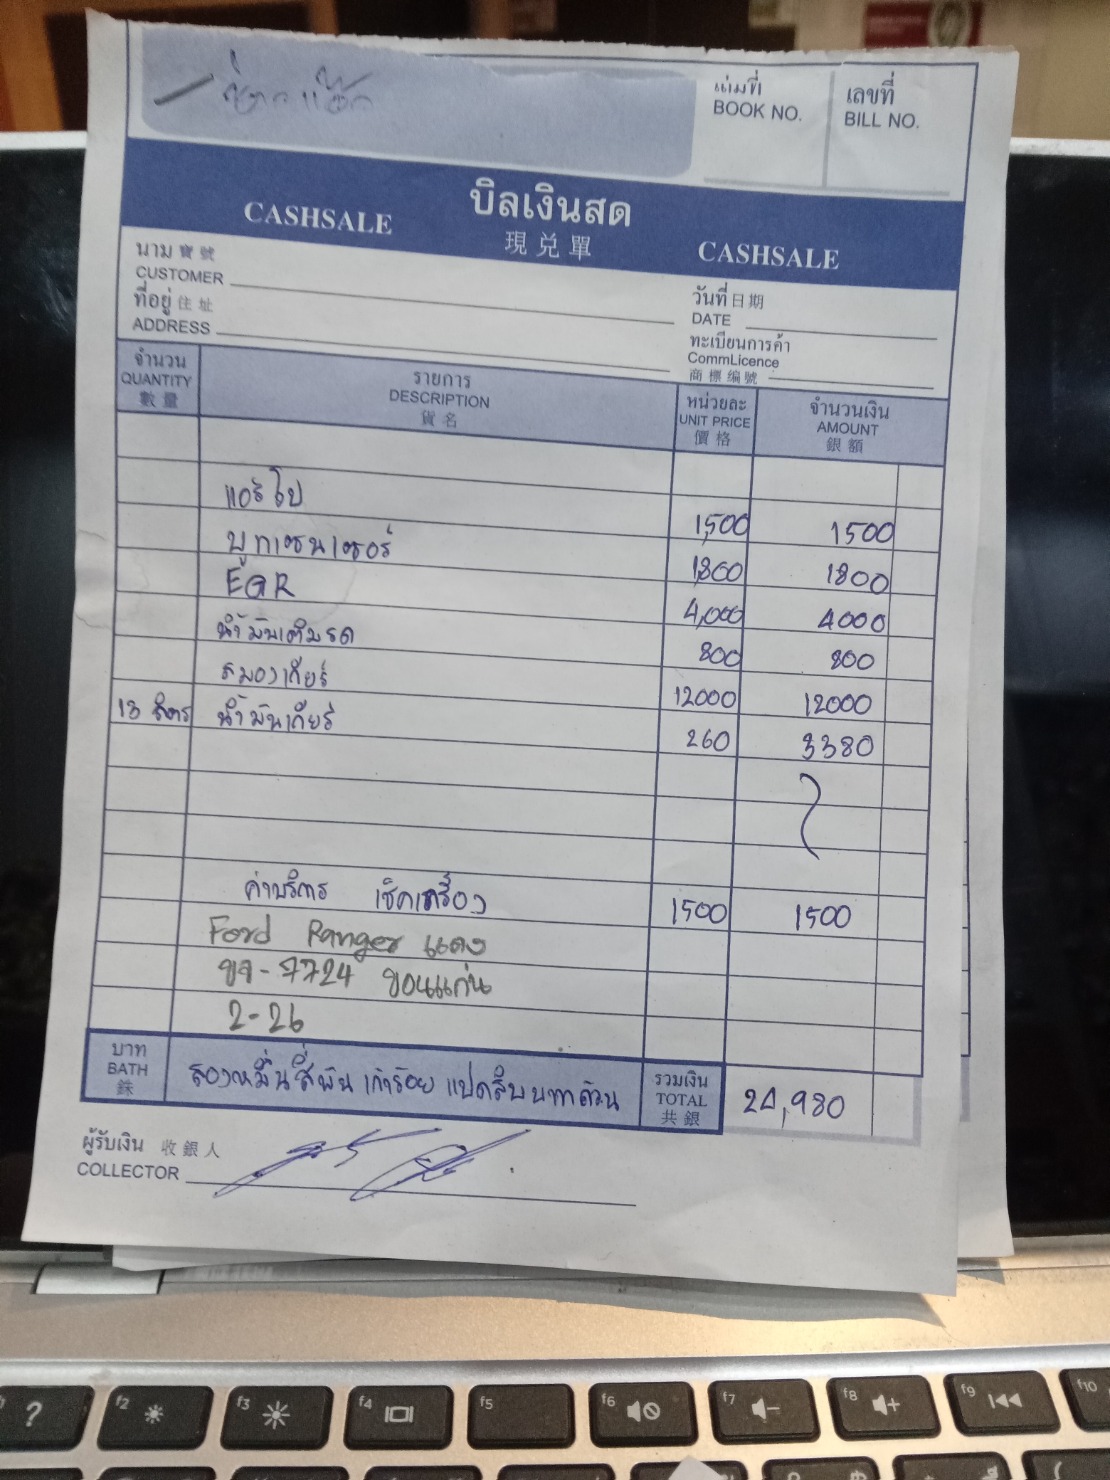 เล่มที่
BOOK NO.
เลขที่
BILL NO.
CASHSALE
บิลเงินสด
現兌單
CASHSALE
นาม 寶號
CUSTOMER
ที่อยู่ 住址
ADDRESS
วันที่ 日期
DATE
ทะเบียนการค้า
CommLicence
商標編號
จำนวน
QUANTITY
數量
รายการ
DESCRIPTION
貨名
หน่วยละ
UNIT PRICE
價格
จำนวนเงิน
AMOUNT
銀額
แอร์โฟ 1,500 1500
บูทเซนเซอร์ 1,800 1800
EGR 4,000 4000
น้ำมันเติมรถ 800 800
สมองเกียร์ 12000 12000
13 ลิตร น้ำมันเกียร์ 260 3380
ค่าบริการ เช็คเครื่อง 1500 1500
Ford Ranger แดง
7724 ขอนแก่น
2-26
บาท
BATH
銖
สองหมื่นสี่พันเก้าร้อยแปดสิบบาทถ้วน
รวมเงิน
TOTAL
共銀
24,980
ผู้รับเงิน 收銀人
COLLECTOR
f2
f3
f4
f5
f6
f7
f8
f9
f10
?